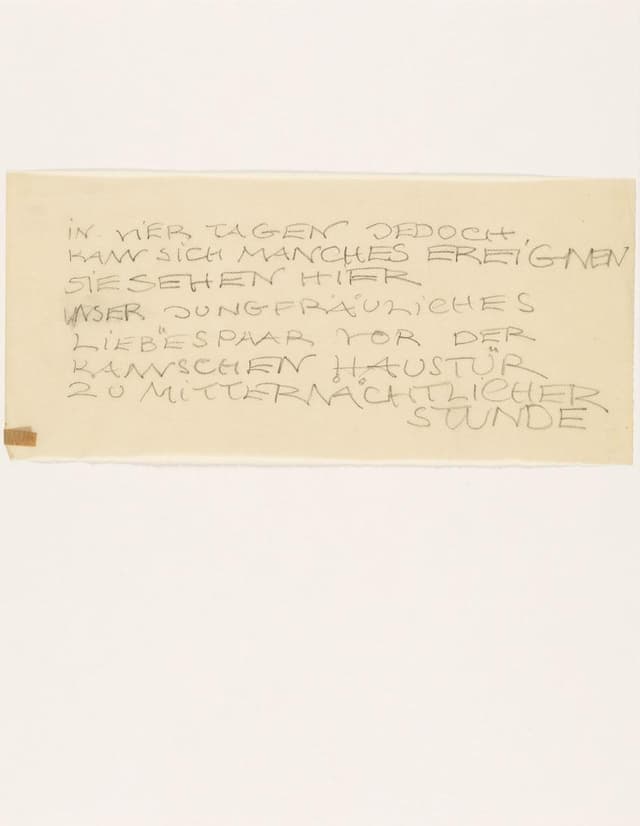 IN VIER TAGEN JEDOCH,
KANN SICH MANCHES EREIGNEN
SIE SEHEN HIER
UNSER JUNGFRÄULICHES
LIEBESPAAR VOR DER
KANNSCHEN HAUSTÜR
ZU MITTERNÄCHTLICHER
STUNDE